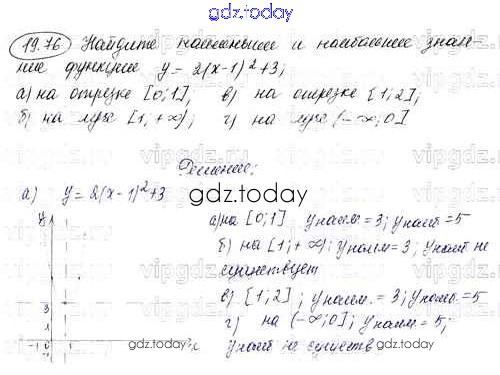 gdz.today
19.76 Найдите наименьшее и наибольшее значе-
ние функции y = 2(x-1)²+3;
а) на отрезке [0;1], в) на отрезке [1;2];
б) на луче [1,+∞); г) на луче (-∞;0]
Решение:
а) y = 2(x-1)²+3
gdz.today
а) на [0;1] yнаим = 3; yнаиб = 5
б) на [1;+∞); yнаим = 3, yнаиб не
существует
в) [1;2]; yнаим. = 3; yнаиб. = 5
г) на (-∞;0]; yнаим = 5;
yнаиб не существ
y
3
-1 0 x
gdz.today
gdz.today